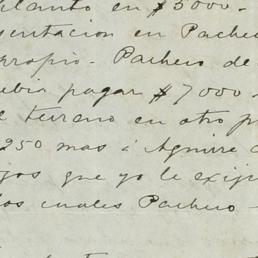 elanto en $5000.-
sentacion en Pachec
propio. Pacheco de
ebia pagar $7000-
l terreno en otro p
250 mas á Aguirre
jos que yo le exij
los cuales Pacheco -